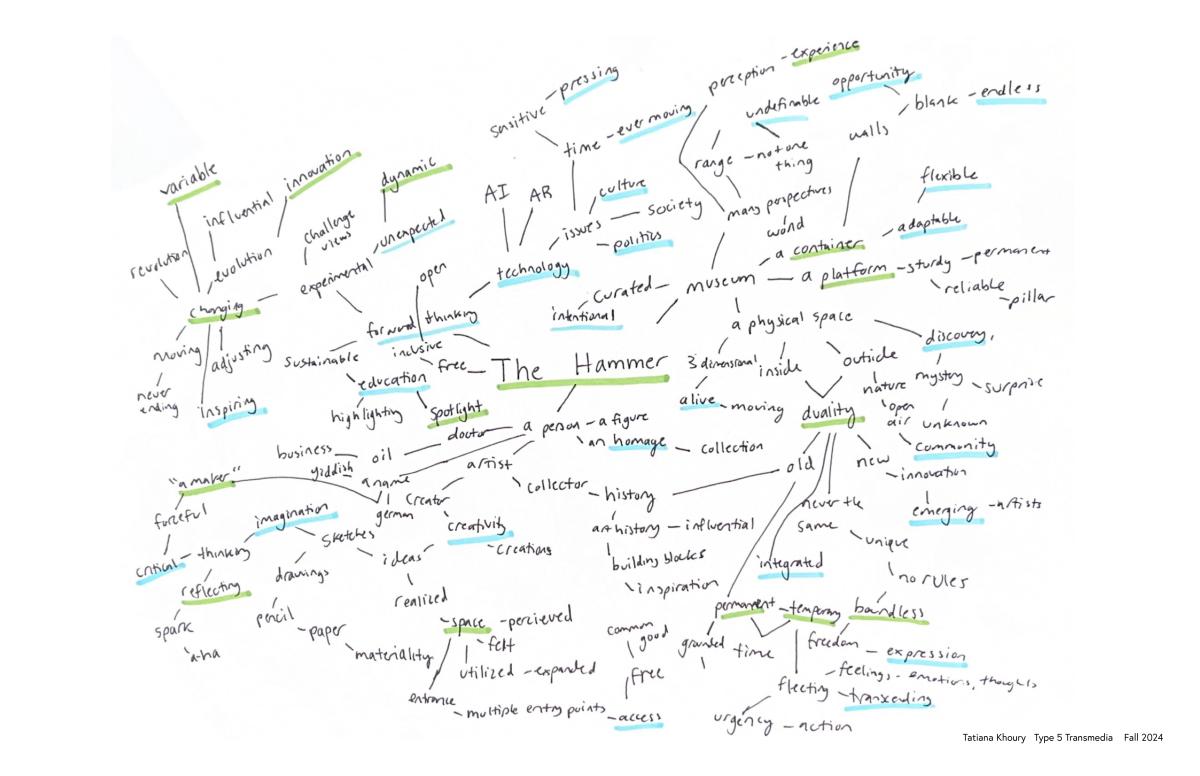 perception - experience
opportunity
sensitive - pressing
undefinable
blank - endless
time - ever moving
walls
range - not one
thing
variable
innovation
dynamic
flexible
AI AR
culture
influential
challenge
views
unexpected
issues - society
many perspectives
world
adaptable
politics
revolution
evolution
a container
experimental
open
technology
museum - a platform - sturdy - permanent
curated
reliable
- pillar
changing
intentional
forward thinking
a physical space
moving
adjusting
sustainable
inclusive
free
The Hammer
3 dimensional
inside
outside
discovery,
never
ending
inspiring
education
nature
mystery - surprise
highlighting
spotlight
alive - moving
duality
open
air
unknown
a person - a figure
doctor
an homage - collection
community
business
oil
yiddish
a name
artist
old
new
- innovation
"a maker"
creator
collector
- history
german
forceful
imagination
sketches
creativity
art history - influential
never the
same
emerging - artists
critical - thinking
ideas
- creations
building blocks
unique
reflecting
drawings
integrated
inspiration
no rules
realized
pencil
- paper
space - percieved
permanent - temporary
boundless
spark
common
good
felt
grounded
time
freedom - expression
a-ha
materiality
utilized - expanded
free
- feelings - emotions, thoughts
entrance
flecting - tranxending
- multiple entry points - access
urgency - action
Tatiana Khoury Type 5 Transmedia Fall 2024